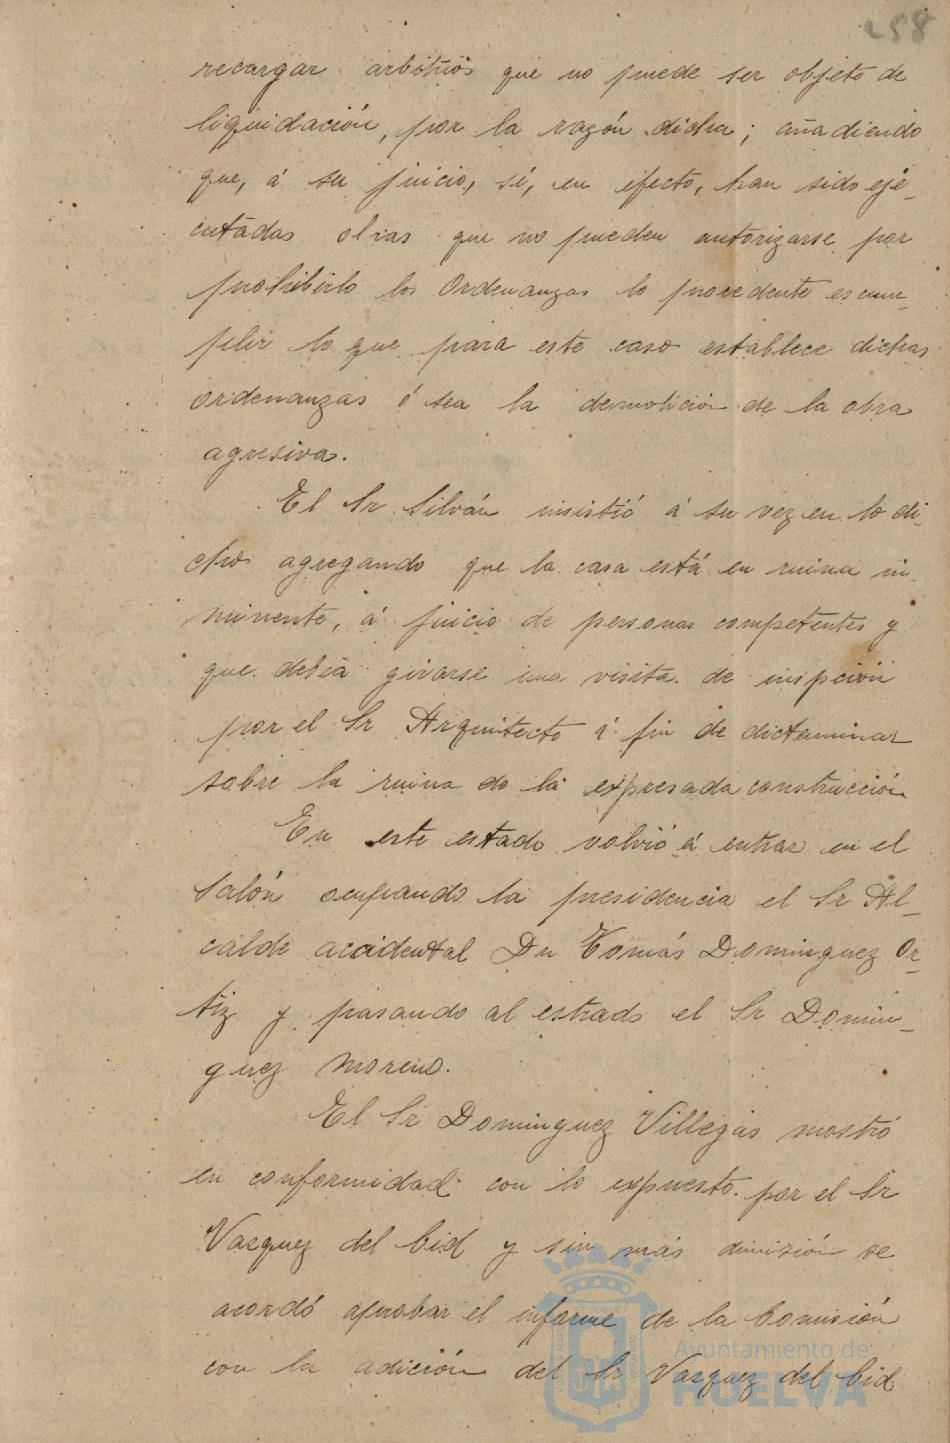 258
recargar arbitrios que no puede ser objeto de
liquidación, por la razón dicha; añadiendo
que, á su juicio, si, en efecto, han sido eje-
cutadas obras que no pueden autorizarse por
prohibirlo las Ordenanzas lo procedente es cum-
plir lo que para este caso establece dichas
ordenanzas ó sea la demolición de la obra
agresiva.
El Sr. Silván insistió á su vez en lo di-
cho agregando que la casa está en ruina in-
minente, á juicio de personas competentes y
que debia girarse una visita de inspeción
por el Sr Arquitecto á fin de dictaminar
sobre la ruina de la expresada construcción
En este estado volvió á entrar en el
Salón ocupando la presidencia el Sr Al-
calde accidental Dn Tomás Dominguez Or-
tiz y pasando al estrado el Sr Domin-
guez Moreno.
El Sr Dominguez Villegas mostró
en conformidad con lo expuesto por el Sr
Vazquez del Cid y sin más se
acordó aprobar el informe de la Comisión
con la adición del Sr Vazquez del Cid
Ayuntamiento de
HUELVA